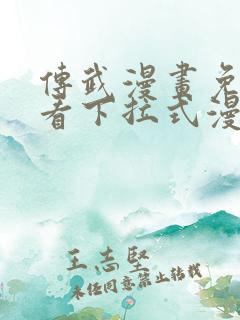 傳武漫畫免
看下拉式漫
王志堅
未经同意禁止转载